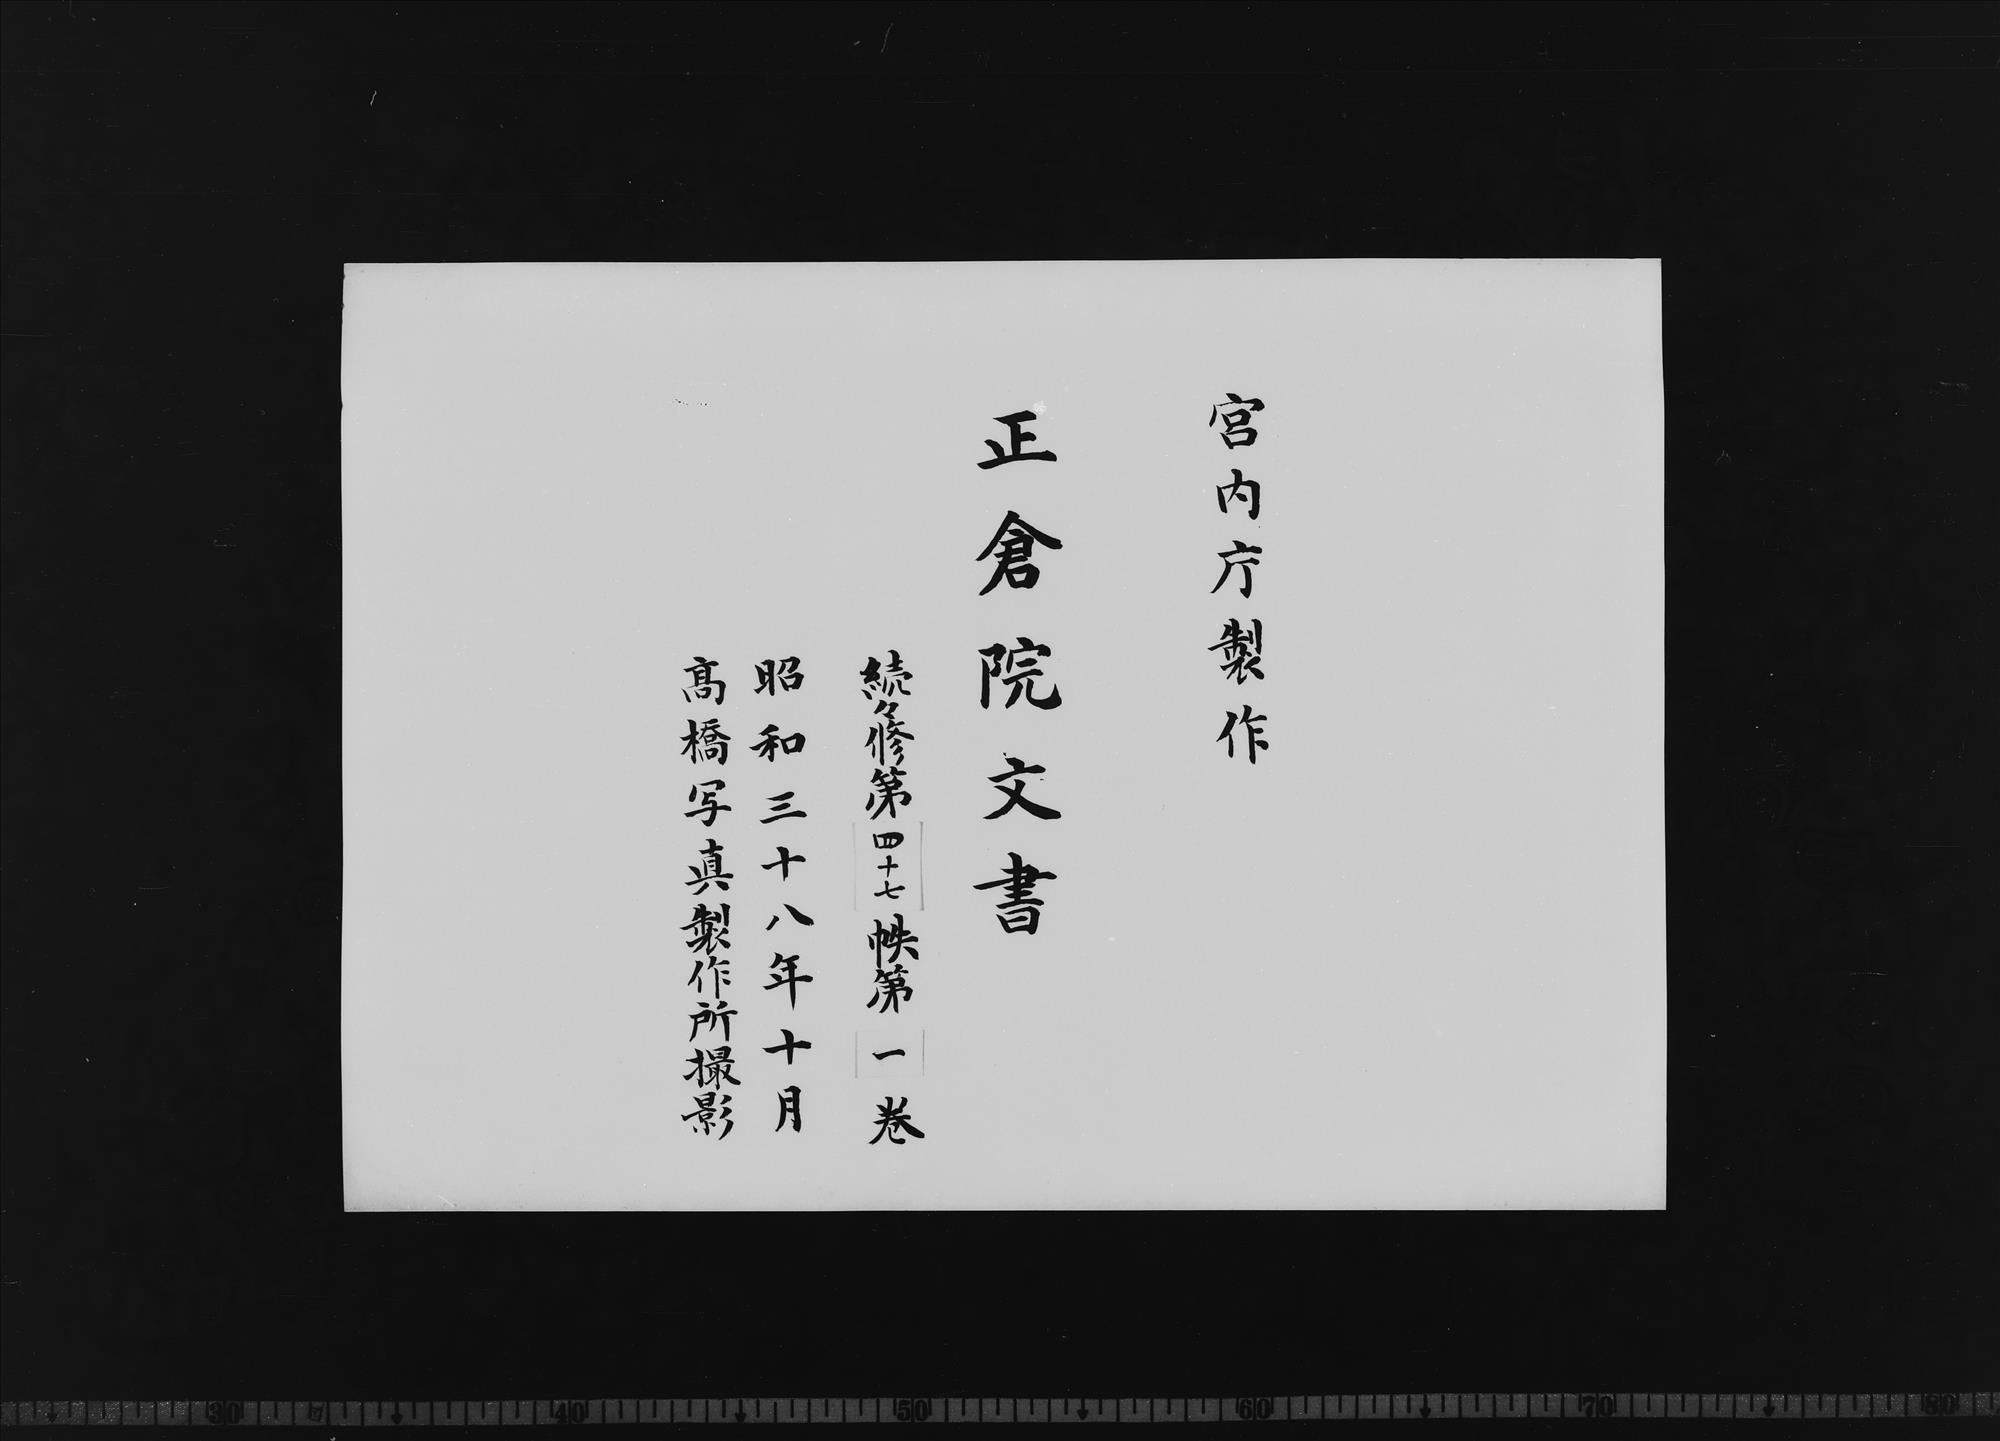 宮内庁製作
正倉院文書
続々修第四十七帙第一巻
昭和三十八年十月
髙橋写真製作所撮影
30 40 50 60 70 80